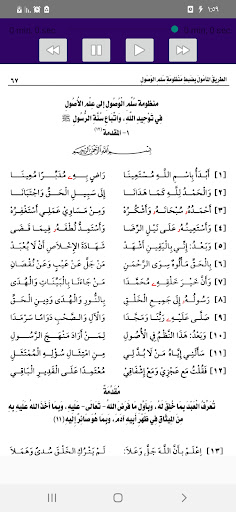 ١:٥٩
0 min, 0 sec
0 min, 0 sec
الطريق المأمول بضبط منظومة سلم الوصول ٦٧
مَنظومَة سُلَّم الْوُصُول إلى عِلْمِ الْأُصُول
في تَوْحِيدِ اللَّهِ، وَاتِّبَاعِ سُنَّةِ الرَّسُولِ ﷺ
١- المقدمة
بِسْمِ اللَّهِ الرَّحْمَنِ الرَّحِيمِ
[١] أَبْدَأُ بِاسْمِ اللَّهِ مُسْتَعِينَا رَاضٍ بِهِ مُدَبِّرًا مُعِينَا
[٢] وَالْحَمْدُ لِلَّهِ كَمَا هَدَانَا إِلَى سَبِيلِ الْحَقِّ وَاجْتَبَانَا
[٣] أَحْمَدُهُ سُبْحَانَهُ وَأَشْكُرُهْ وَمِنْ مَسَاوِي عَمَلِي أَسْتَغْفِرُهْ
[٤] وَأَسْتَعِينُهُ عَلَى نَيْلِ الرِّضَا وَأَسْتَمِدُّ لُطْفَهُ، فِيمَا قَضَى
[٥] وَبَعْدُ: إِنِّي بِالْيَقِينِ أَشْهَدُ شَهَادَةَ الْإِخْلَاصِ أَنْ لَا يُعْبَدُ
[٦] بِالْحَقِّ مَأْلُوهٌ سِوَى الرَّحْمَنِ مَنْ جَلَّ عَنْ عَيْبٍ وَعَنْ نُقْصَانِ
[٧] وَأَنَّ خَيْرَ خَلْقِهِ مُحَمَّدَا مَنْ جَاءَنَا بِالْبَيِّنَاتِ وَالْهُدَى
[٨] رَسُولُهُ إِلَى جَمِيعِ الْخَلْقِ بِالنُّورِ وَالْهُدَى وَدِينِ الْحَقِّ
[٩] صَلَّى عَلَيْهِ رَبُّنَا وَمَجَّدَا وَالْآلِ وَالصَّحْبِ دَوَامًا سَرْمَدَا
[١٠] وَبَعْدُ: هَذَا النَّظْمُ فِي الْأُصُولِ لِمَنْ أَرَادَ مَنْهَجَ الرَّسُولِ
[١١] سَأَلَنِي إِيَّاهُ مَنْ لَا بُدَّ لِي مِنِ امْتِثَالِ سُؤْلِهِ الْمُمْتَثَلِ
[١٢] فَقُلْتُ مَعَ عَجْزِي وَمَعْ إِشْفَاقِي مُعْتَمِدًا عَلَى الْقَدِيرِ الْبَاقِي
مُقَدِّمَةٌ
تُعَرِّفُ الْعَبْدَ بِمَا خُلِقَ لَهُ، وَبِأَوَّلِ مَا فَرَضَ اللَّهُ – تَعَالَى – عَلَيْهِ، وَبِمَا أَخَذَ اللَّهُ عَلَيْهِ بِهِ
مِنَ الْمِيثَاقِ فِي ظَهْرِ أَبِيهِ آدَمَ، وَبِمَا هُوَ صَائِرٌ إِلَيْهِ (١١)
[١٣] اِعْلَمْ بِأَنَّ اللَّهَ جَلَّ وَعَلَا لَمْ يَتْرُكِ الْخَلْقَ سُدًى وَهَمَلَا